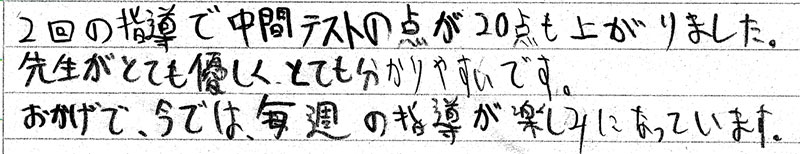 2回の指導で中間テストの点が20点も上がりました。
先生がとても優しく、とても分かりやすいです。
おかげで、今では、毎週の指導が楽しみになっています。